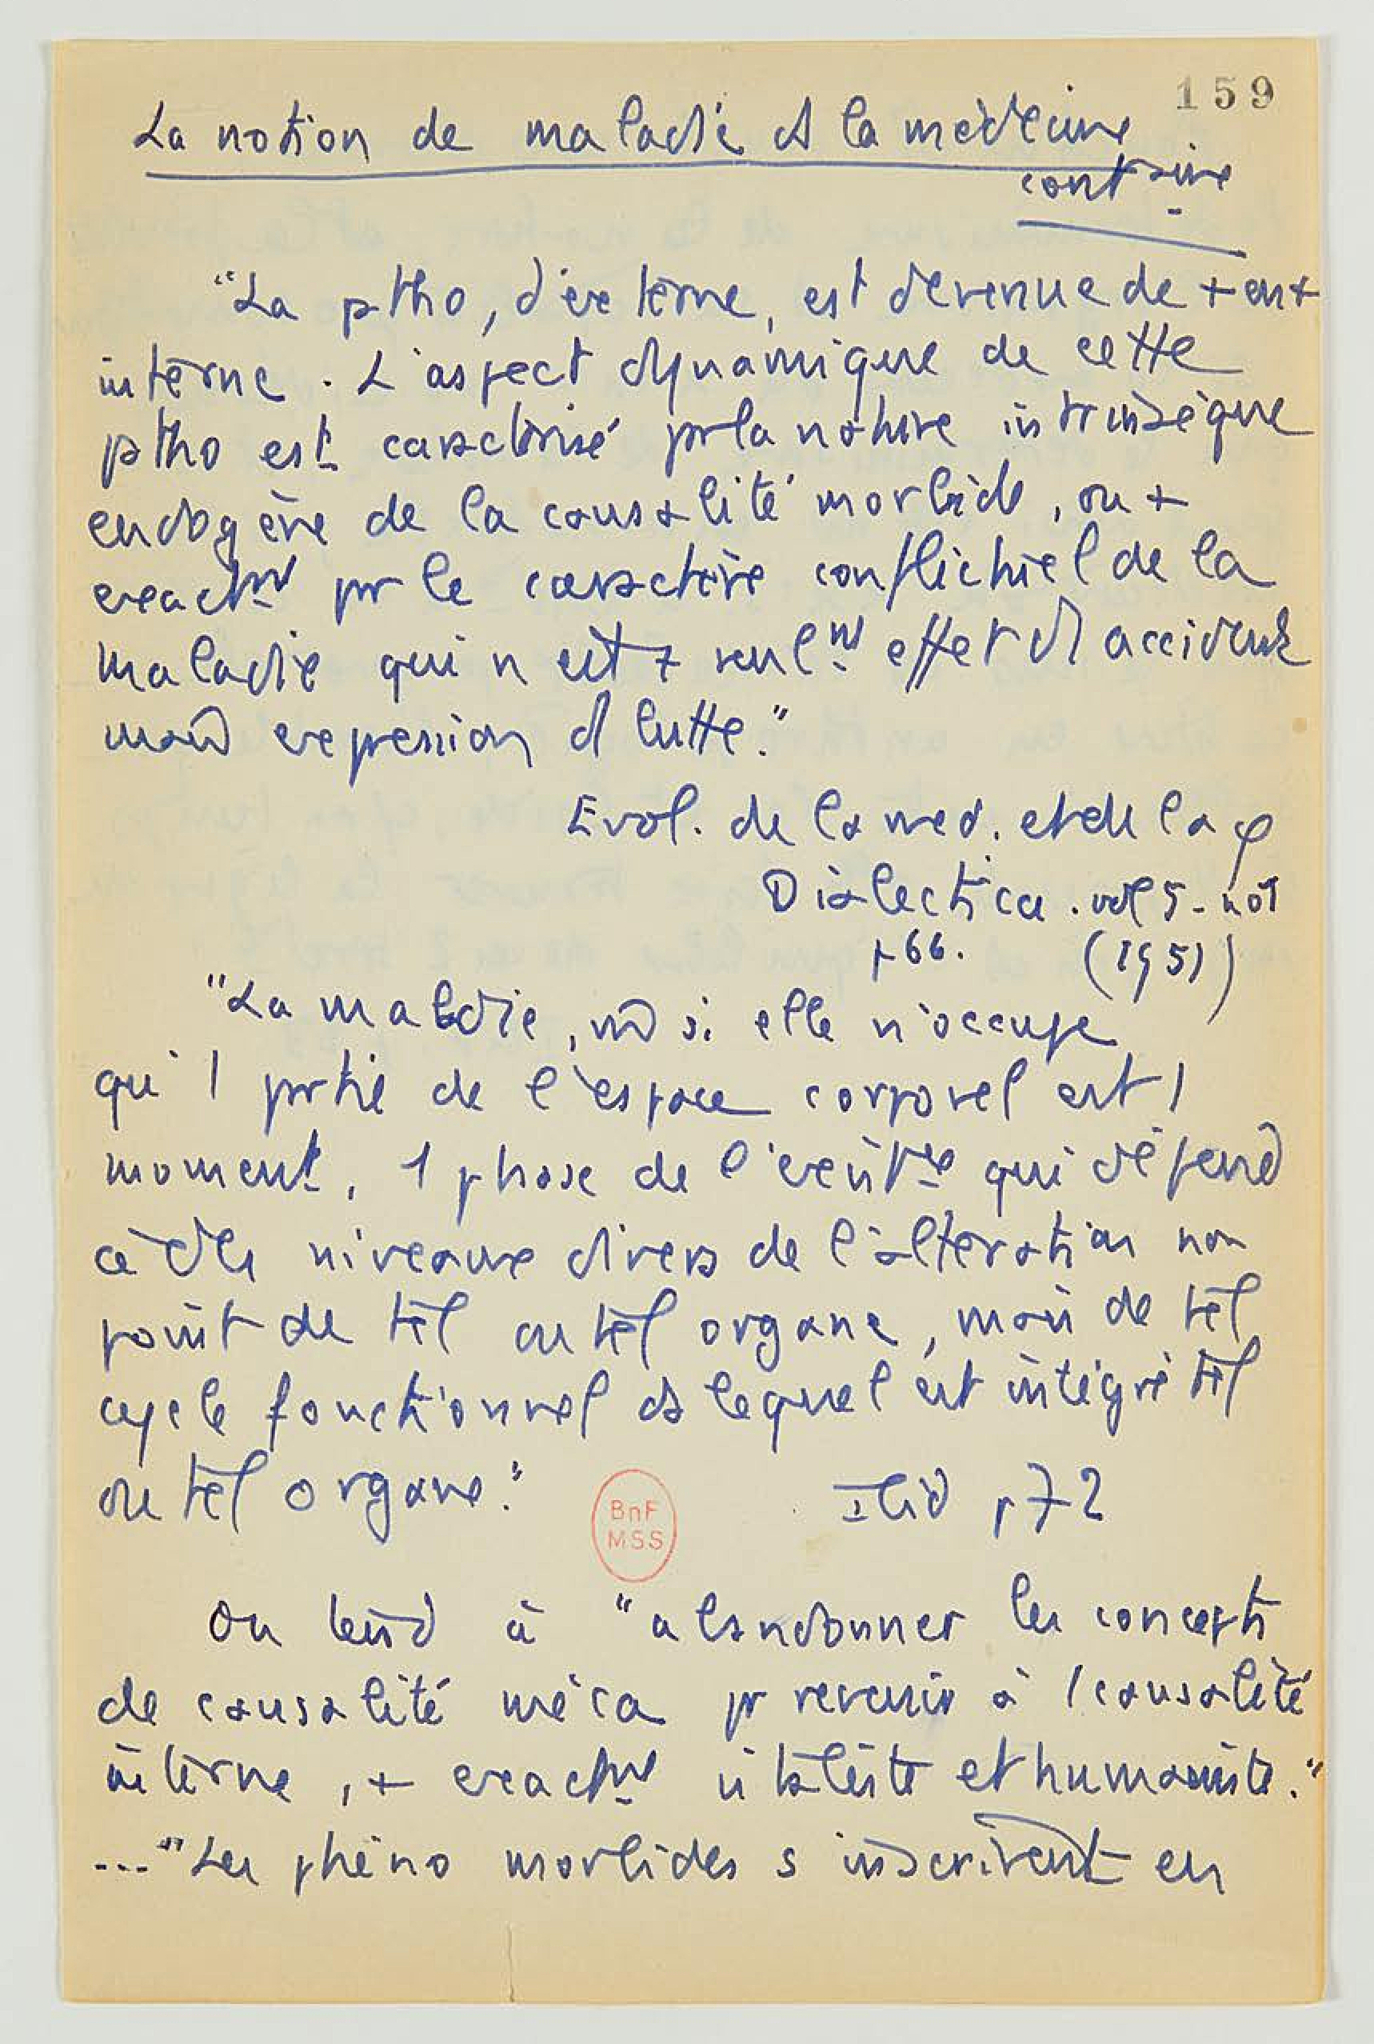 159
La notion de maladie et la médecine
contraine
"La ptho, d'externe, est devenue de + en +
interne. L'aspect dynamique de cette
ptho est caractérisé pr la nature intrinsèque
endogène de la causalité morbide, ou +
exactmt pr le caractère conflictuel de la
maladie qui n'est seulmt effet d'1 accident
mais expression d lutte."
Evol. de la med. et de la φ
Dialectica. vol 5 - no1
p 66. (1951)
"La maladie, m̂ si elle n'occupe
qu'1 partie de l'espace corporel est 1
moment, 1 phase de l'existce qui dépend
à des niveaux divers de l'altération non
point de tel ou tel organe, mais de tel
cycle fonctionnel ds lequel est intégré tel
ou tel organe."
Ibid p 72
BnF
MSS
On tend à "abandonner les concepts
de causalité méca pr revenir à 1 causalité
interne, + exactmt vitaliste et humaniste."
... "Les phéno morbides s'inscrivent en